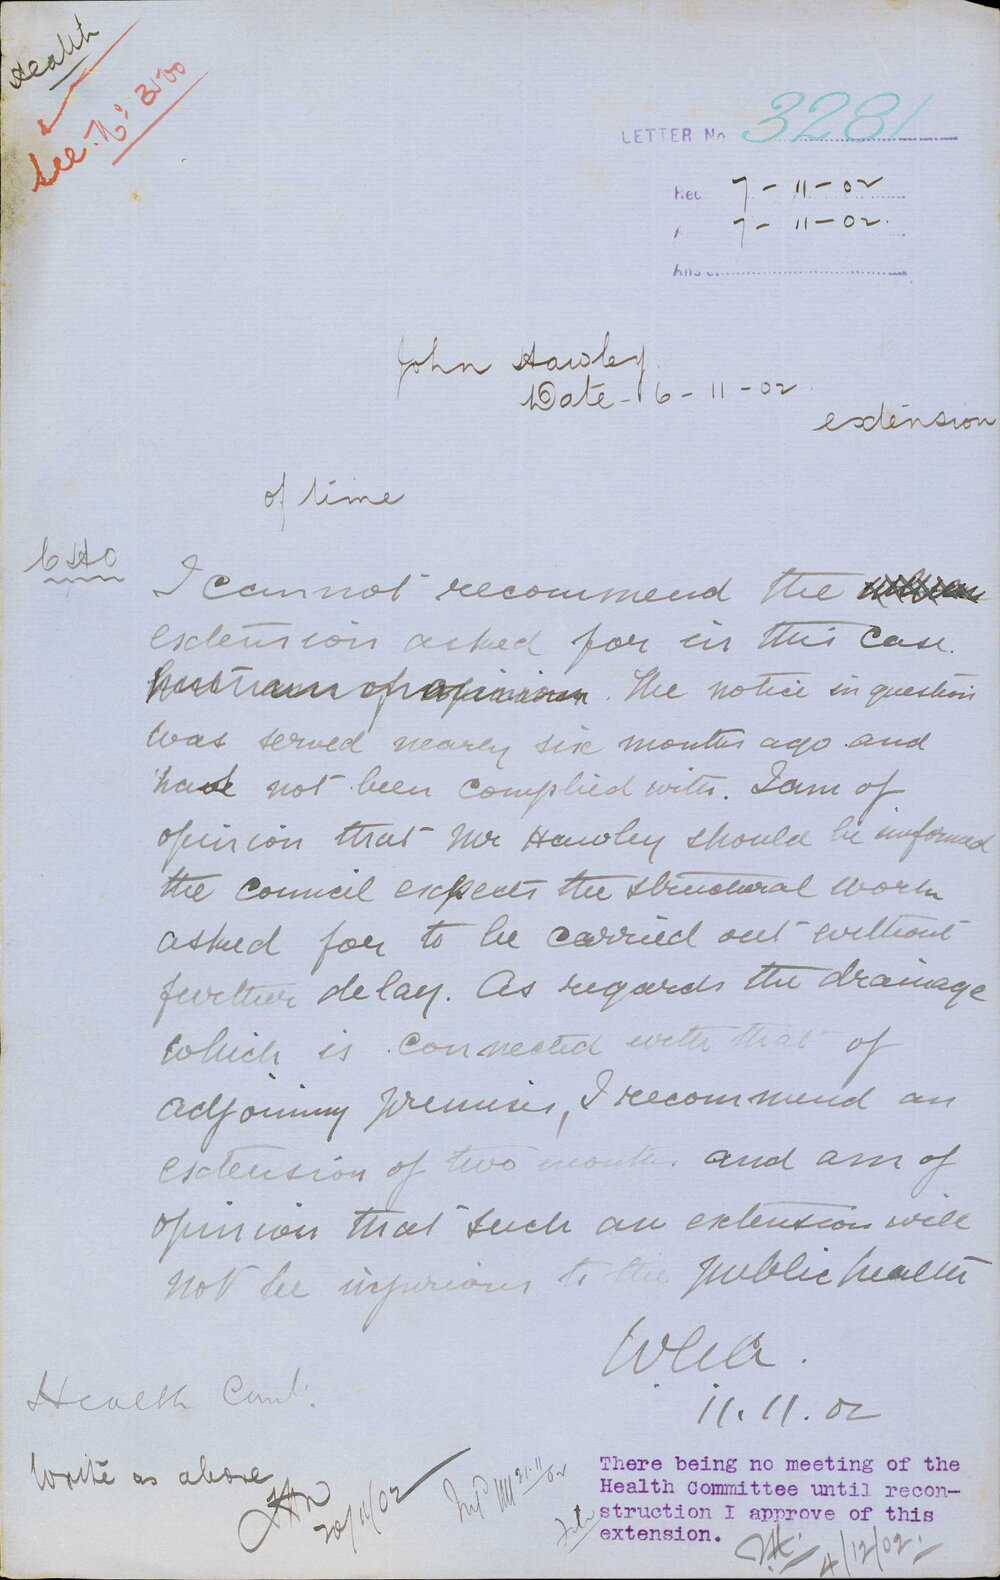 Health
See No: 3500
LETTER No 3281
Rec 7-11-02
7-11-02.
Ans
John Hawley.
Date - 6-11-02.
extension
of time
CHO
I cannot recommend the
extension asked for in this case.
but am of opinion. The notice in question
was served nearly six months ago and
have not been complied with. I am of
opinion that Mr Hawley should be informed
the council expects the structural work
asked for to be carried out without
further delay. As regards the drainage
which is connected with that of
adjoining premises, I recommend an
extension of two months. and am of
opinion that such an extension will
not be injurious to the public health
11.11.02
Health Comt:
Write as above
20/11/02
21.11/02
File
There being no meeting of the
Health Committee until recon-
struction I approve of this
extension.
4/12/02